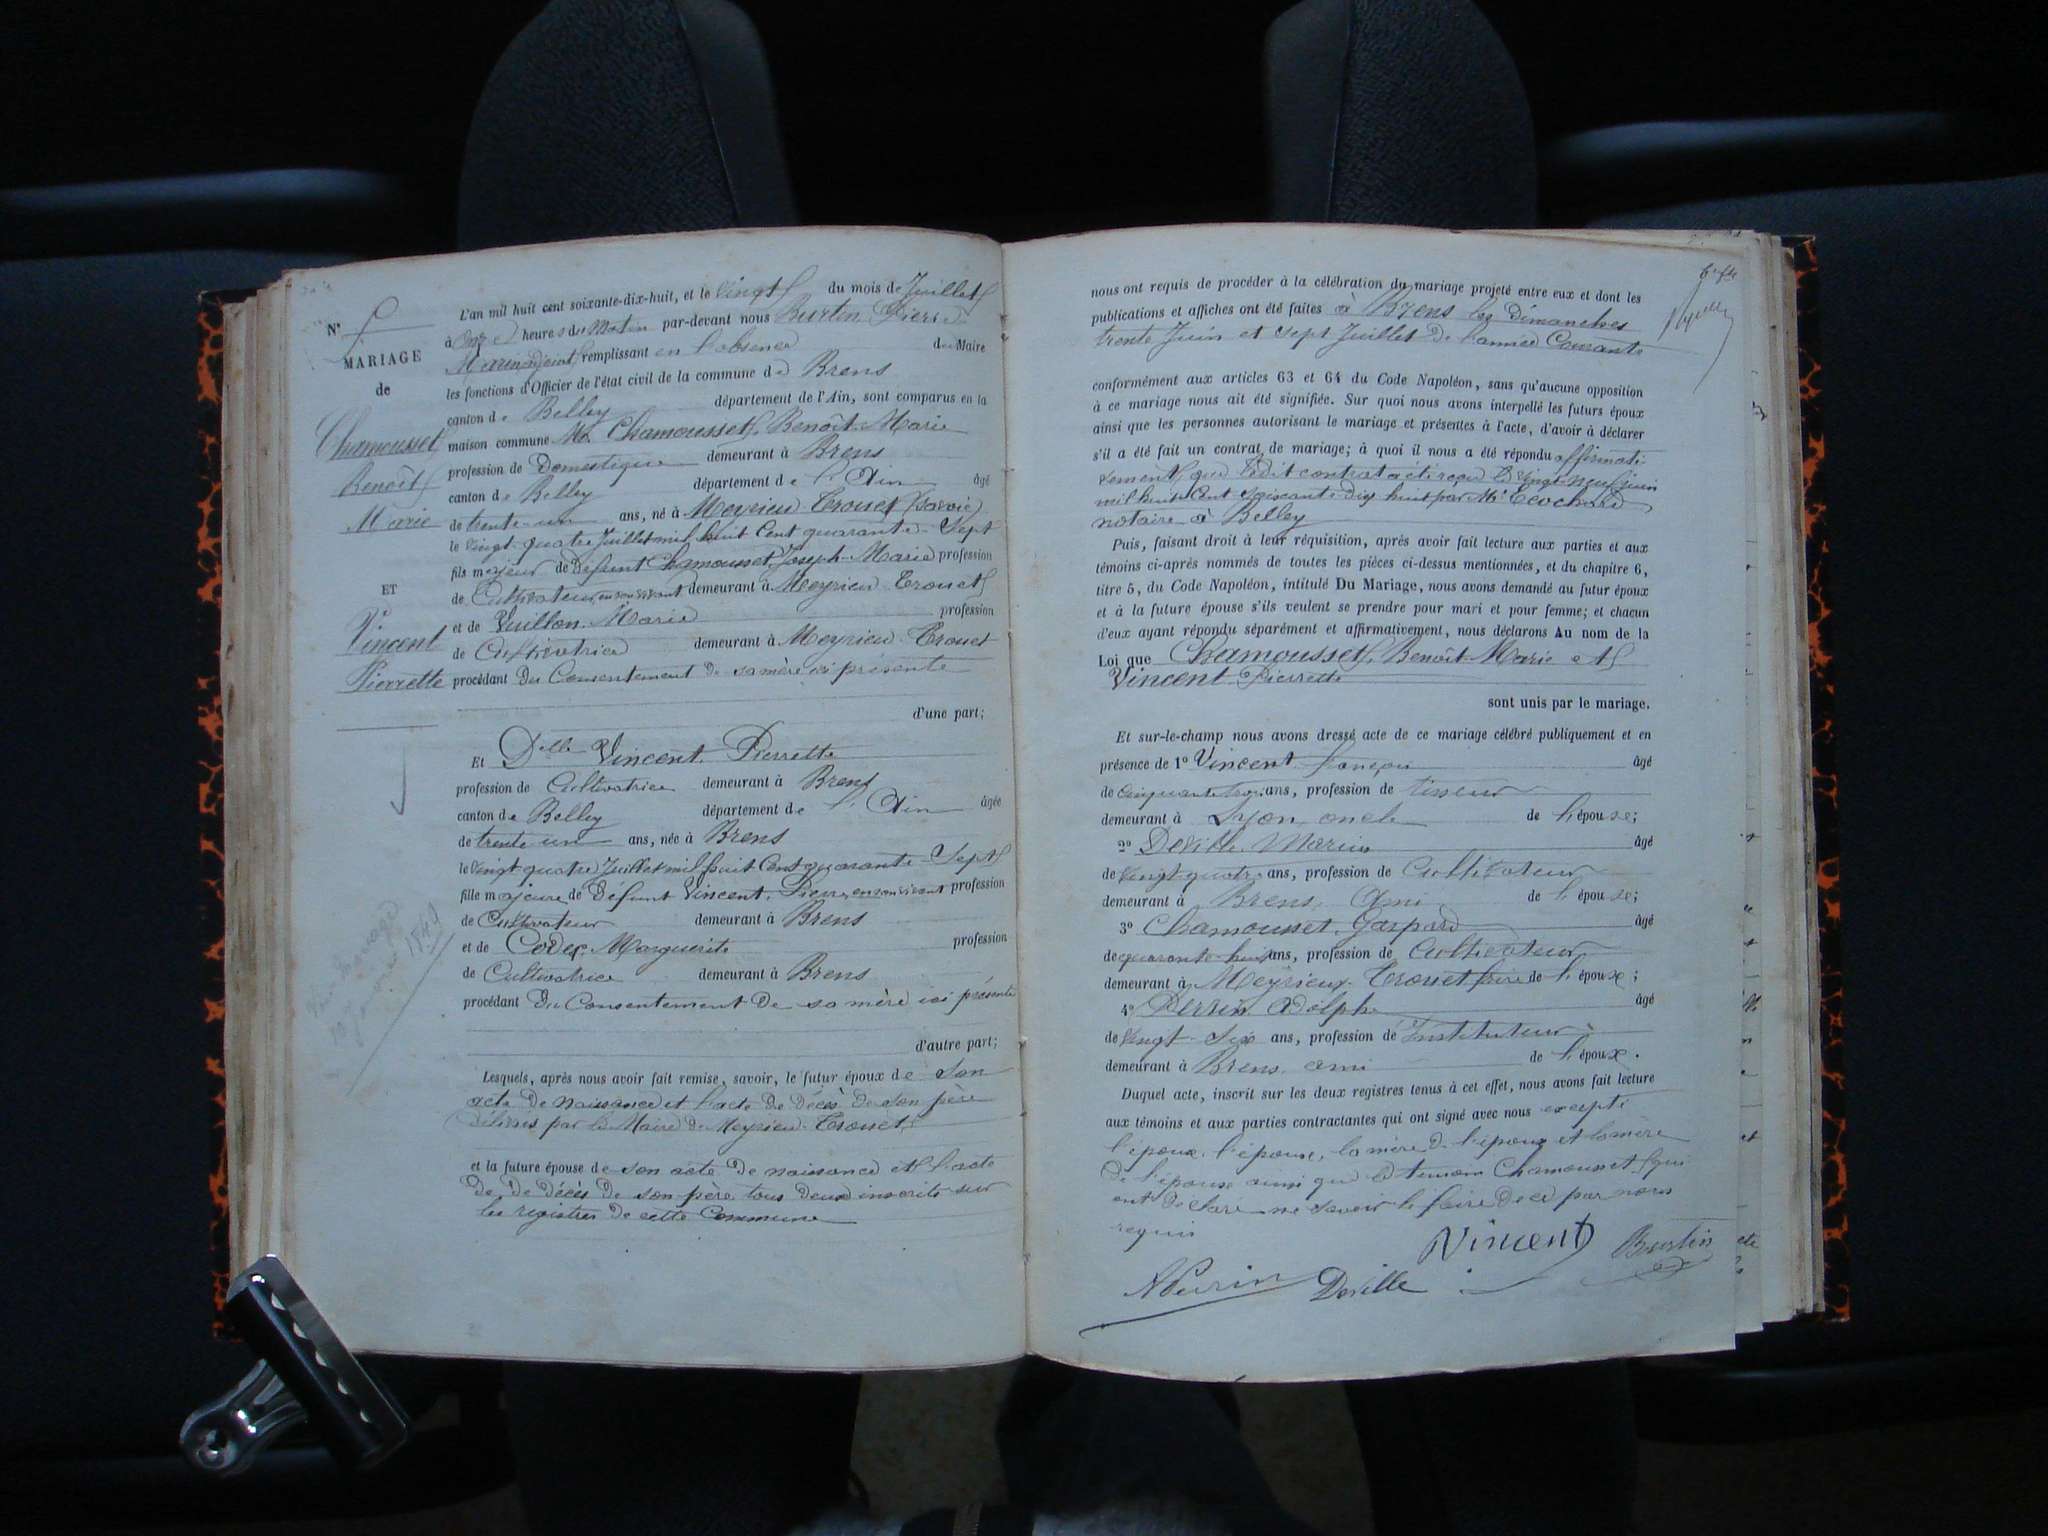 L'an mil huit cent soixante-dix-huit, et le vingt du mois de Juillet
N°
à onze heures du Matin par-devant nous Burtin Pierre
MARIAGE
adjoint remplissant en l'absence du Maire
de
les fonctions d'Officier de l'état civil de la commune de Brens
canton de Belley département de l'Ain, sont comparus en la
Chamousset
maison commune Mr. Chamousset, Benoît Marie
profession de Domestique demeurant à Brens
Benoît
canton de Belley département de l'Ain âgé
Marie
de trente-un ans, né à Meyrieu Trouet (Savoie)
le vingt-quatre Juillet mil huit Cent quarante-Sept
fils majeur de Défunt Chamousset Joseph-Marie profession
ET
de Cultivateur en son vivant demeurant à Meyrieu Trouet
et de Vuillon Marie profession
Vincent
de Cultivatrice demeurant à Meyrieu Trouet
Pierrette
procédant Du Consentement De sa mère ici présente
d'une part;
Et Delle Vincent Pierrette
profession de Cultivatrice demeurant à Brens
canton de Belley département de l'Ain âgée
de trente un ans, née à Brens
le vingt quatre Juillet mil huit Cent quarante-Sept
fille majeure de Défunt Vincent, Pierre, en son vivant profession
de Cultivateur demeurant à Brens
et de Marguerite profession
de Cultivatrice demeurant à Brens
procédant Du Consentement De sa mère ici présente
d'autre part;
Lesquels, après nous avoir fait remise, savoir, le futur époux de Son
acte De naissance et l'acte De Décès De son père
Délivrés par le Maire De Meyrieu-Trouet,
et la future épouse de son acte De naissance et l'acte
De De Décès De son père tous Deux inscrits sur
les registres De cette Commune
nous ont requis de procéder à la célébration du mariage projeté entre eux et dont les
publications et affiches ont été faites à Brens les Dimanches
trente Juin et sept Juillet De l'année Courante
conformément aux articles 63 et 64 du Code Napoléon, sans qu'aucune opposition
à ce mariage nous ait été signifiée. Sur quoi nous avons interpellé les futurs époux
ainsi que les personnes autorisant le mariage et présentes à l'acte, d'avoir à déclarer
s'il a été fait un contrat de mariage; à quoi il nous a été répondu affirmati-
vement, que ledit contrat a été reçu le vingt neuf juin
mil huit Cent Soixante-Dix huit par Me
notaire à Belley
Puis, faisant droit à leur réquisition, après avoir fait lecture aux parties et aux
témoins ci-après nommés de toutes les pièces ci-dessus mentionnées, et du chapitre 6,
titre 5, du Code Napoléon, intitulé Du Mariage, nous avons demandé au futur époux
et à la future épouse s'ils veulent se prendre pour mari et pour femme; et chacun
d'eux ayant répondu séparément et affirmativement, nous déclarons Au nom de la
Loi que Chamousset, Benoît-Marie et
Vincent Pierrette
sont unis par le mariage.
Et sur-le-champ nous avons dressé acte de ce mariage célébré publiquement et en
présence de 1° Vincent âgé
de cinquante trois ans, profession de tisseur
demeurant à Lyon, oncle de l'épouse;
2° Deville Marius âgé
de vingt-quatre ans, profession de Cultivateur
demeurant à Brens, Ami de l'épouse;
3° Chamousset, Gaspard âgé
de quarante-huit ans, profession de Cultivateur
demeurant à Meyrieux-Trouet frère de l'époux;
4° Perrin Adolphe âgé
de vingt-Six ans, profession de Instituteur
demeurant à Brens ami de l'époux.
Duquel acte, inscrit sur les deux registres tenus à cet effet, nous avons fait lecture
aux témoins et aux parties contractantes qui ont signé avec nous excepté
l'époux, l'épouse, la mère De l'époux et la mère
De l'épouse ainsi que le témoin Chamousset, qui
ont Déclaré ne savoir le faire De ce par nous
requis
Vincent Burtin
APerrin Deville